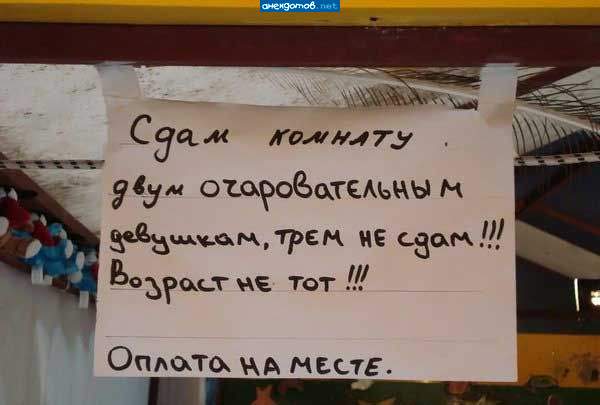 анекдотов.net
Сдам комнату.
двум очаровательным
девушкам, трем не сдам!!!
Возраст не тот!!!
Оплата на месте.